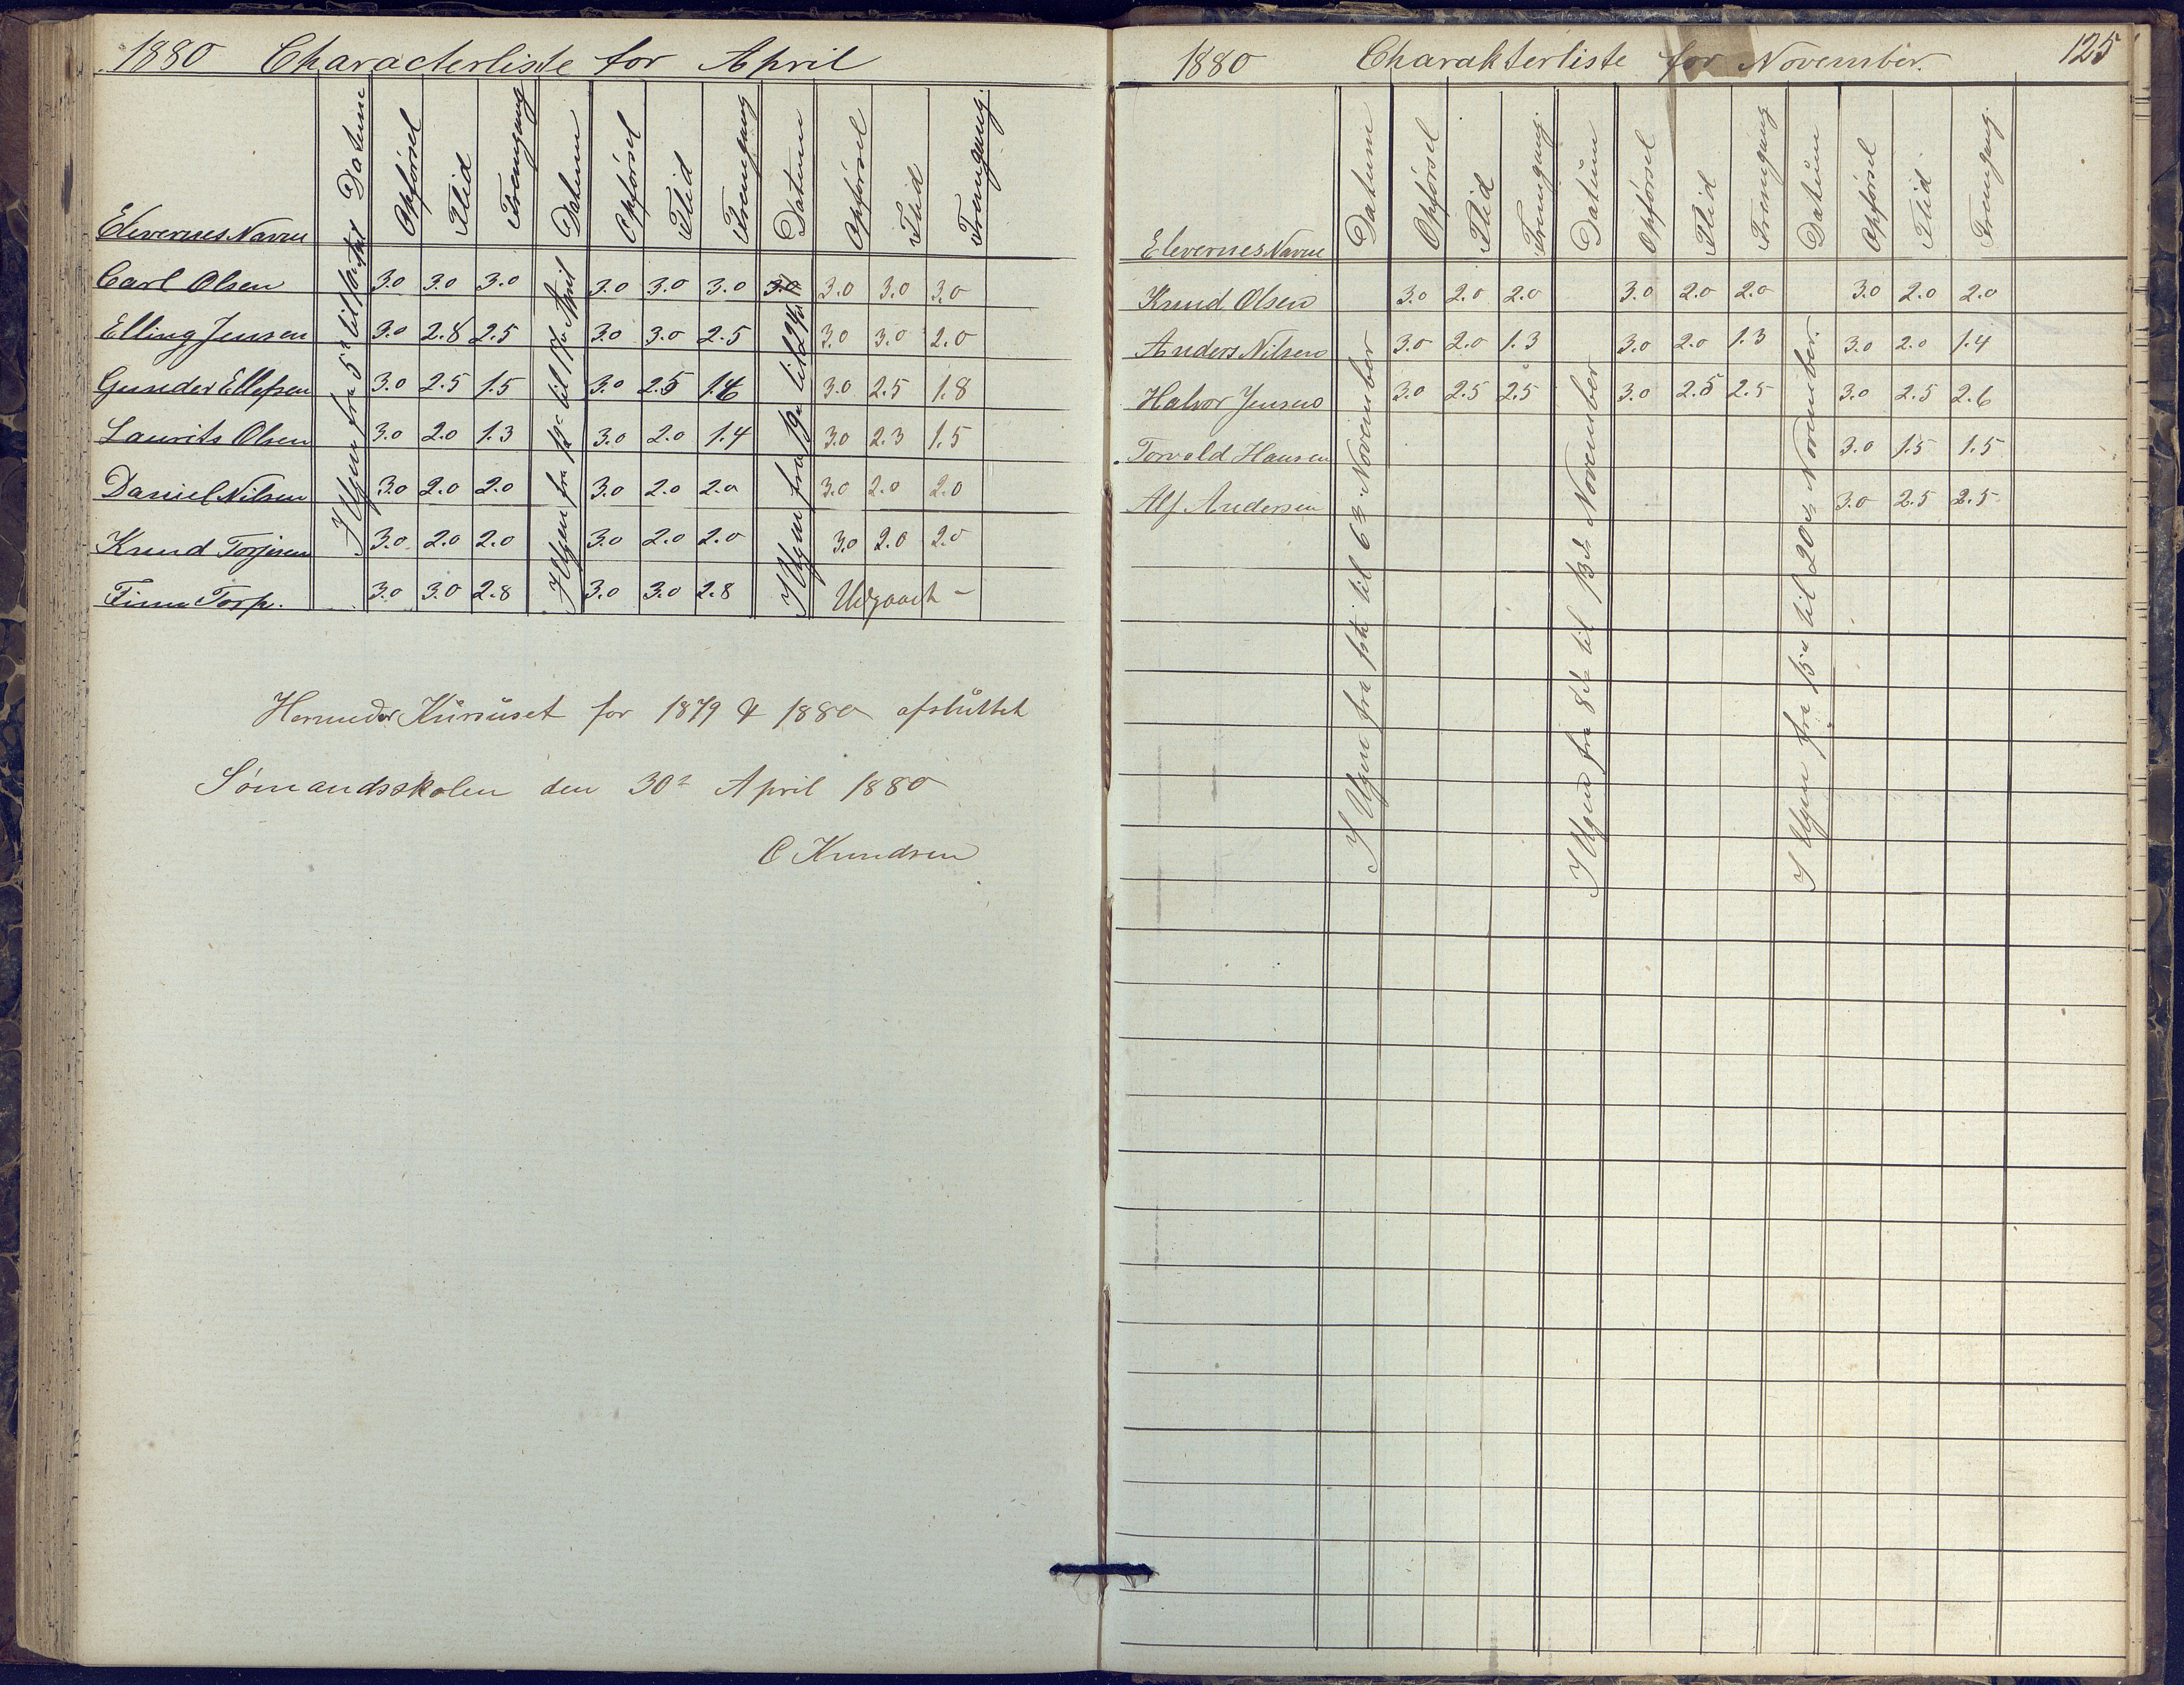 1880 Characterliste for April
Elevernes Navne Datum Opførsel Flid Fremgang Datum Opførsel Flid Fremgang Datum Opførsel Flid Fremgang.
I Ugen fra 5te til
I Ugen fra 12te til 17de April
I Ugen fra 19de til 24de
Carl Olsen 3.0 3.0 3.0 3.0 3.0 3.0 3.0 3.0 3.0 3.0
Elling Jensen 3.0 2.8 2.5 3.0 3.0 2.5 3.0 3.0 2.0
Gunder Ellefsen 3.0 2.5 1.5 3.0 2.5 1.6 3.0 2.5 1.8
Laurits Olsen 3.0 2.0 1.3 3.0 2.0 1.4 3.0 2.3 1.5
Daniel Nilsen 3.0 2.0 2.0 3.0 2.0 2.0 3.0 2.0 2.0
Knud Torjesen 3.0 2.0 2.0 3.0 2.0 2.0 3.0 2.0 2.0
Finn Torp. 3.0 3.0 2.8 3.0 3.0 2.8 Udgaaet –
Hermeder Kursuset for 1879 & 1880 afsluttet
Sømandsskolen den 30te April 1880
C Knudsen
1880 Charakterliste for November. 125
Elevernes Navne Datum Opførsel Flid Fremgang. Datum Opførsel Flid Fremgang Datum Opførsel Flid. Fremgang.
I Ugen fra 1ste til 6te November
I Ugen fra 8de til 13de November
I Ugen fra 15de til 20de November.
Knud Olsen 3.0 2.0 2.0 3.0 2.0 2.0 3.0 2.0 2.0
Anders Nilsen 3.0 2.0 1.3 3.0 2.0 1.3 3.0 2.0 1.4
Halvor Jensen 3.0 2.5 2.5 3.0 2.5 2.5 3.0 2.5 2.6
Torvald Hansen 3.0 1.5 1.5
Alf Andersen 3.0 2.5 2.5